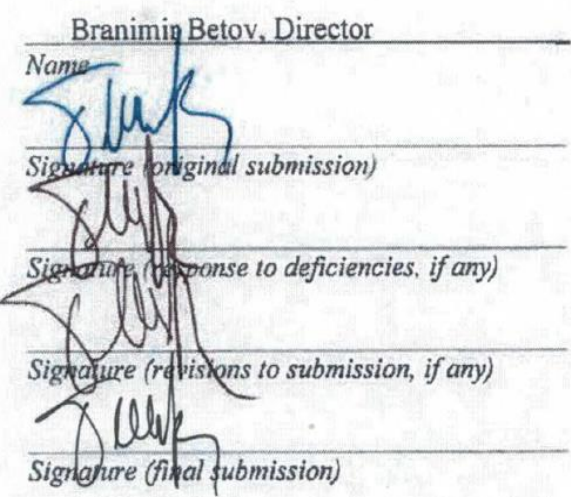 Branimir Betov, Director
Name
Signature (original submission)
Signature (response to deficiencies, if any)
Signature (revisions to submission, if any)
Signature (final submission)